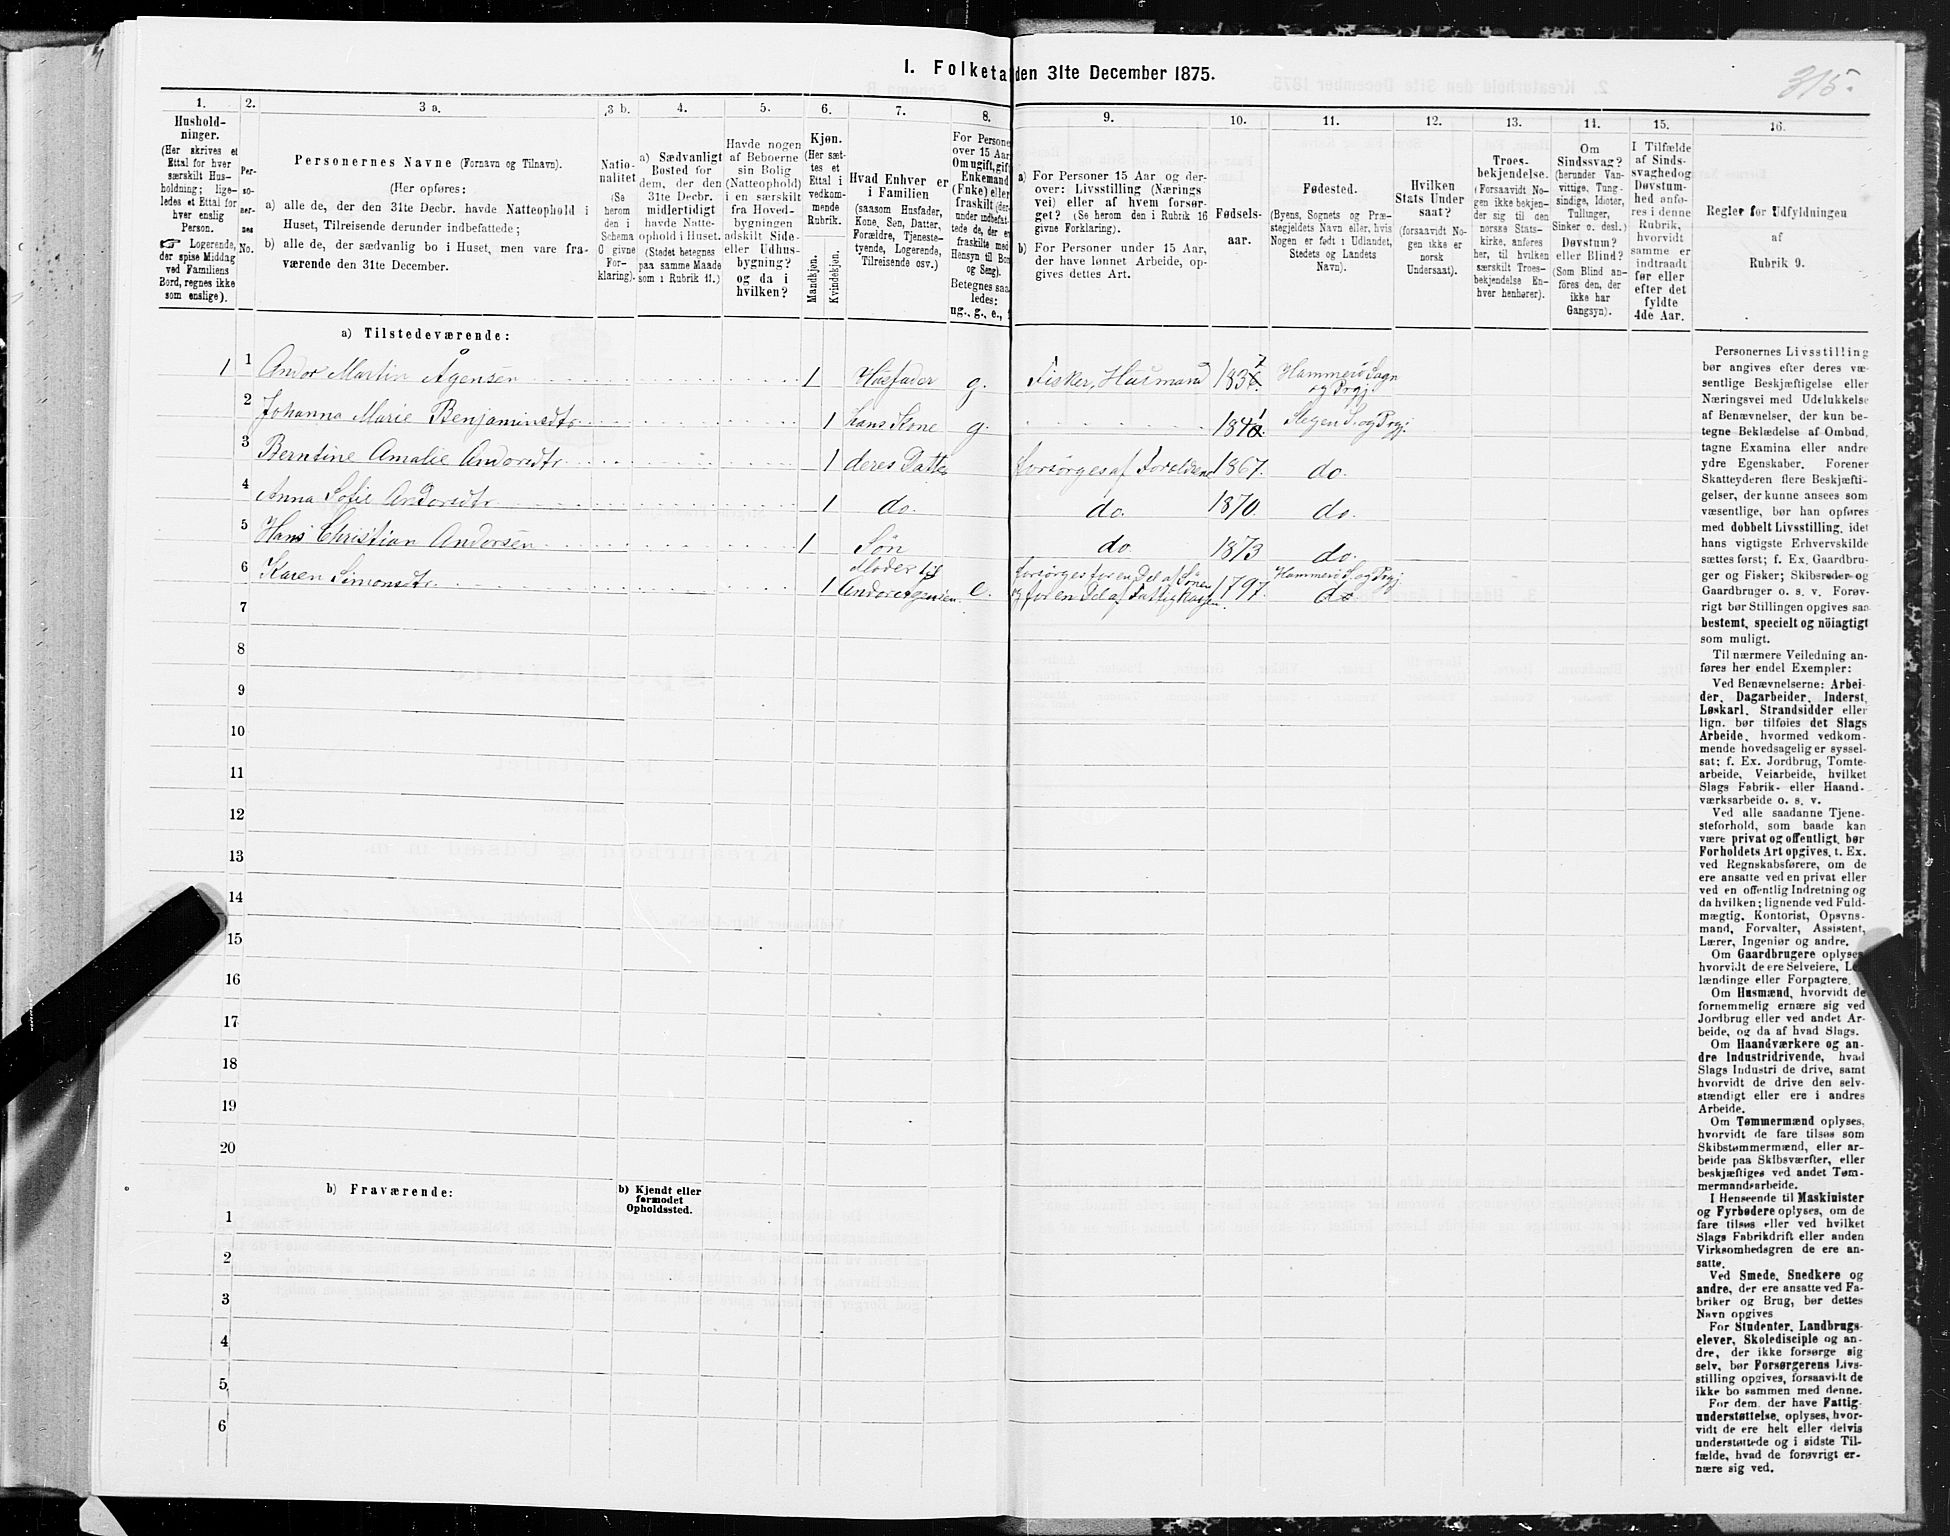 I. Folketa den 31te December 1875.
315.
1.
Hushold-
ninger.
(Her skrives et
Ettal for hver
særskilt Hus-
holdning; lige-
ledes et Ettal for
hver enslig
Person.
Logerende,
der spise Middag
ved Familiens
Bord, regnes ikke
som enslige).
2.
Per-
so-
ner-
nes
No.
3 a.
Personernes Navne (Fornavn og Tilnavn).
(Her opføres:
a) alle de, der den 31te Decbr. havde Natteophold i
Huset, Tilreisende derunder indbefattede;
b) alle de, der sædvanlig bo i Huset, men vare fra-
værende den 31te December.
3 b.
Natio-
nalitet
(Se
herom
den i
Schema
C givne
For-
klaring).
4.
a) Sædvanligt
Bosted for
dem, der den
31te Decbr.
midlertidigt
havde Natte-
ophold i Huset.
(Stedet betegnes
paa samme Maade
som i Rubrik 11.)
5.
Havde nogen
af Beboerne
sin Bolig
(Natteophold)
i en særskilt
fra Hoved-
bygningen
adskilt Side-
eller Udhus-
bygning?
og da i
hvilken?
6.
Kjøn.
(Her sæt-
tes et
Ettal i
vedkom-
mende
Rubrik.
Mandkjøn.
Kvindekjøn.
7.
Hvad Enhver er
i Familien
(saasom Husfader,
Kone, Søn, Datter,
Forældre, Tjeneste-
tyende, Logerende,
Tilreisende osv.)
8.
For Persone
over 15 Aar
Om ugift, gif
Enkemand
(Enke) eller
fraskilt (der
under indbefat-
tede de, der er
fraskilte med
Hensyn til Bor
og Seng).
Betegnes saa
ledes:
ug., g., e., f
9.
a) For Personer 15 Aar og der-
over: Livsstilling (Nærings
vei) eller af hvem forsør-
get? (Se herom den i Rubrik 16
givne Forklaring).
b) For Personer under 15 Aar,
der have lønnet Arbeide, op-
gives dettes Art.
10.
Fødsels-
aar.
11.
Fødested.
(Byens, Sognets og Præ-
stegjeldets Navn eller, hvis
Nogen er født i Udlandet,
Stedets og Landets
Navn).
12.
Hvilken
Stats Under
saat?
(forsaavidt No-
gen ikke er
norsk
Undersaat).
13.
Troes-
bekjendelse.
(Forsaavidt No-
gen ikke bekjen-
der sig til den
norske Stats-
kirke, anføres
her, til hvilken
særskilt Troes-
bekjendelse En-
hver henhører).
14.
Om
Sindssvag?
(herunder Van-
vittige, Tung-
sindige, Idioter,
Tullinger,
Sinker o. desl.)
Døvstum?
eller Blind?
(Som Blind an-
føres den, der
ikke har
Gangsyn).
15.
I Tilfælde
af Sinds-
svaghed og
Døvstum-
hed anfø-
res i denne
Rubrik,
hvorvidt
samme er
indtraadt
før eller
efter det
fyldte
4de Aar.
16.
Regler for Udfyldningen
af
Rubrik 9.
a) Tilstedeværende:
1 1 Andor Martin Ågensen 1 Husfader g. Fisker, Husmand 1837. Hammerø Sogn
og Prgj.
2 Johanna Marie Benjaminsdtr. 1 hans Kone g. 1841. Stegen S. og Prgj.
3 Berntine Amalie Andorsdtr. 1 deres Datter forsørges af Foreldrene 1867. do.
4 Anna Sofie Andorsdtr. 1 do. do. 1870. do.
5 Hans Christian Andorsen 1 Søn do. 1873 do.
6 Karen Simonsdtr. 1 Moder til
Andor Ågensen. e. forsørges for en Del af Sönen
og for en Del af Fattigkassen. 1797. Hammerø S. og Prgj.
do
7
8
9
10
11
12
13
14
15
16
17
18
19
20
b) Fraværende:
b) Kjendt eller
formodet
Opholdssted.
1
2
3
4
5
6
Personernes Livsstilling
bør angives efter deres væ-
sentlige Beskjæftigelse eller
Næringsvei med Udelukkelse
af Benævnelser, der kun be-
tegne Beklædelse af Ombud,
tagne Examina eller andre
ydre Egenskaber. Forener
Skatteyderen flere Beskjæfti-
gelser, der kunne ansees som
væsentlige, bør han opføres
med dobbelt Livsstilling, idet
hans vigtigste Erhvervskilde
sættes først; f. Ex. Gaardbru-
ger og Fisker; Skibsreder og
Gaardbruger o. s. v. Forøv-
rigt bør Stillingen opgives saa
bestemt, specielt og nöiagtigt
som muligt.
Til nærmere Veiledning an-
føres her endel Exempler:
Ved Benævnelserne: Arbei-
der, Dagarbeider, Inderst,
Løskarl, Strandsidder eller
lign. bør tilføies det Slags
Arbeide, hvormed vedkom-
mende hovedsagelig er syssel-
sat; f. Ex. Jordbrug, Tomte-
arbeide, Veiarbeide, hvilket
Slags Fabrik- eller Haand-
værksarbeide o. s. v.
Ved alle saadanne Tjene-
steforhold, som baade kan
være privat og offentligt, bør
Forholdets Art opgives, t. Ex.
ved Regnskabsførere, om de
ere ansatte ved en privat eller
ved en offentlig Indretning og
da hvilken; lignende ved Fuld-
mægtig, Kontorist, Opsyns-
mand, Forvalter, Assistent,
Lærer, Ingeniør og andre.
Om Gaardbrugere oplyses,
hvorvidt de ere Selveiere, Lei
lændinge eller Forpagtere.
Om Husmænd, hvorvidt de
fornemmelig ernære sig ved
Jordbrug eller ved andet Ar-
beide, og da af hvad Slags.
Om Haandværkere og an-
dre Industridrivende, hvad
Slags Industri de drive, samt
hvorvidt de drive den selv-
stændigt eller ere i andres
Arbeide.
Om Tømmermænd oplyses,
hvorvidt de fare tilsøs som
Skibstømmermænd, eller ar-
beide paa Skibsværfter, eller
beskjæftiges ved andet Tøm-
mermandsarbeide.
I Henseende til Maskinister
og Fyrbødere oplyses, om de
fare tilsøs eller ved hvilket
Slags Fabrikdrift eller anden
Virksomhedsgren de ere an-
satte.
Ved Smede, Snedkere og
andre, der ere ansatte ved Fa-
briker og Brug, bør dettes
Navn opgives
For Studenter, Landbrugs-
elever, Skoledisciple og an-
dre, der ikke forsørge sig
selv, bør Forsørgerens Livs-
stilling opgives, forsaavidt de
ikke bo sammen med denne.
For dem, der have Fattig-
understøttelse, oplyses, hvor-
vidt de ere helt eller delvis
understøttede og i sidste Til-
fælde, hvad de forøvrigt er-
nære sig ved.